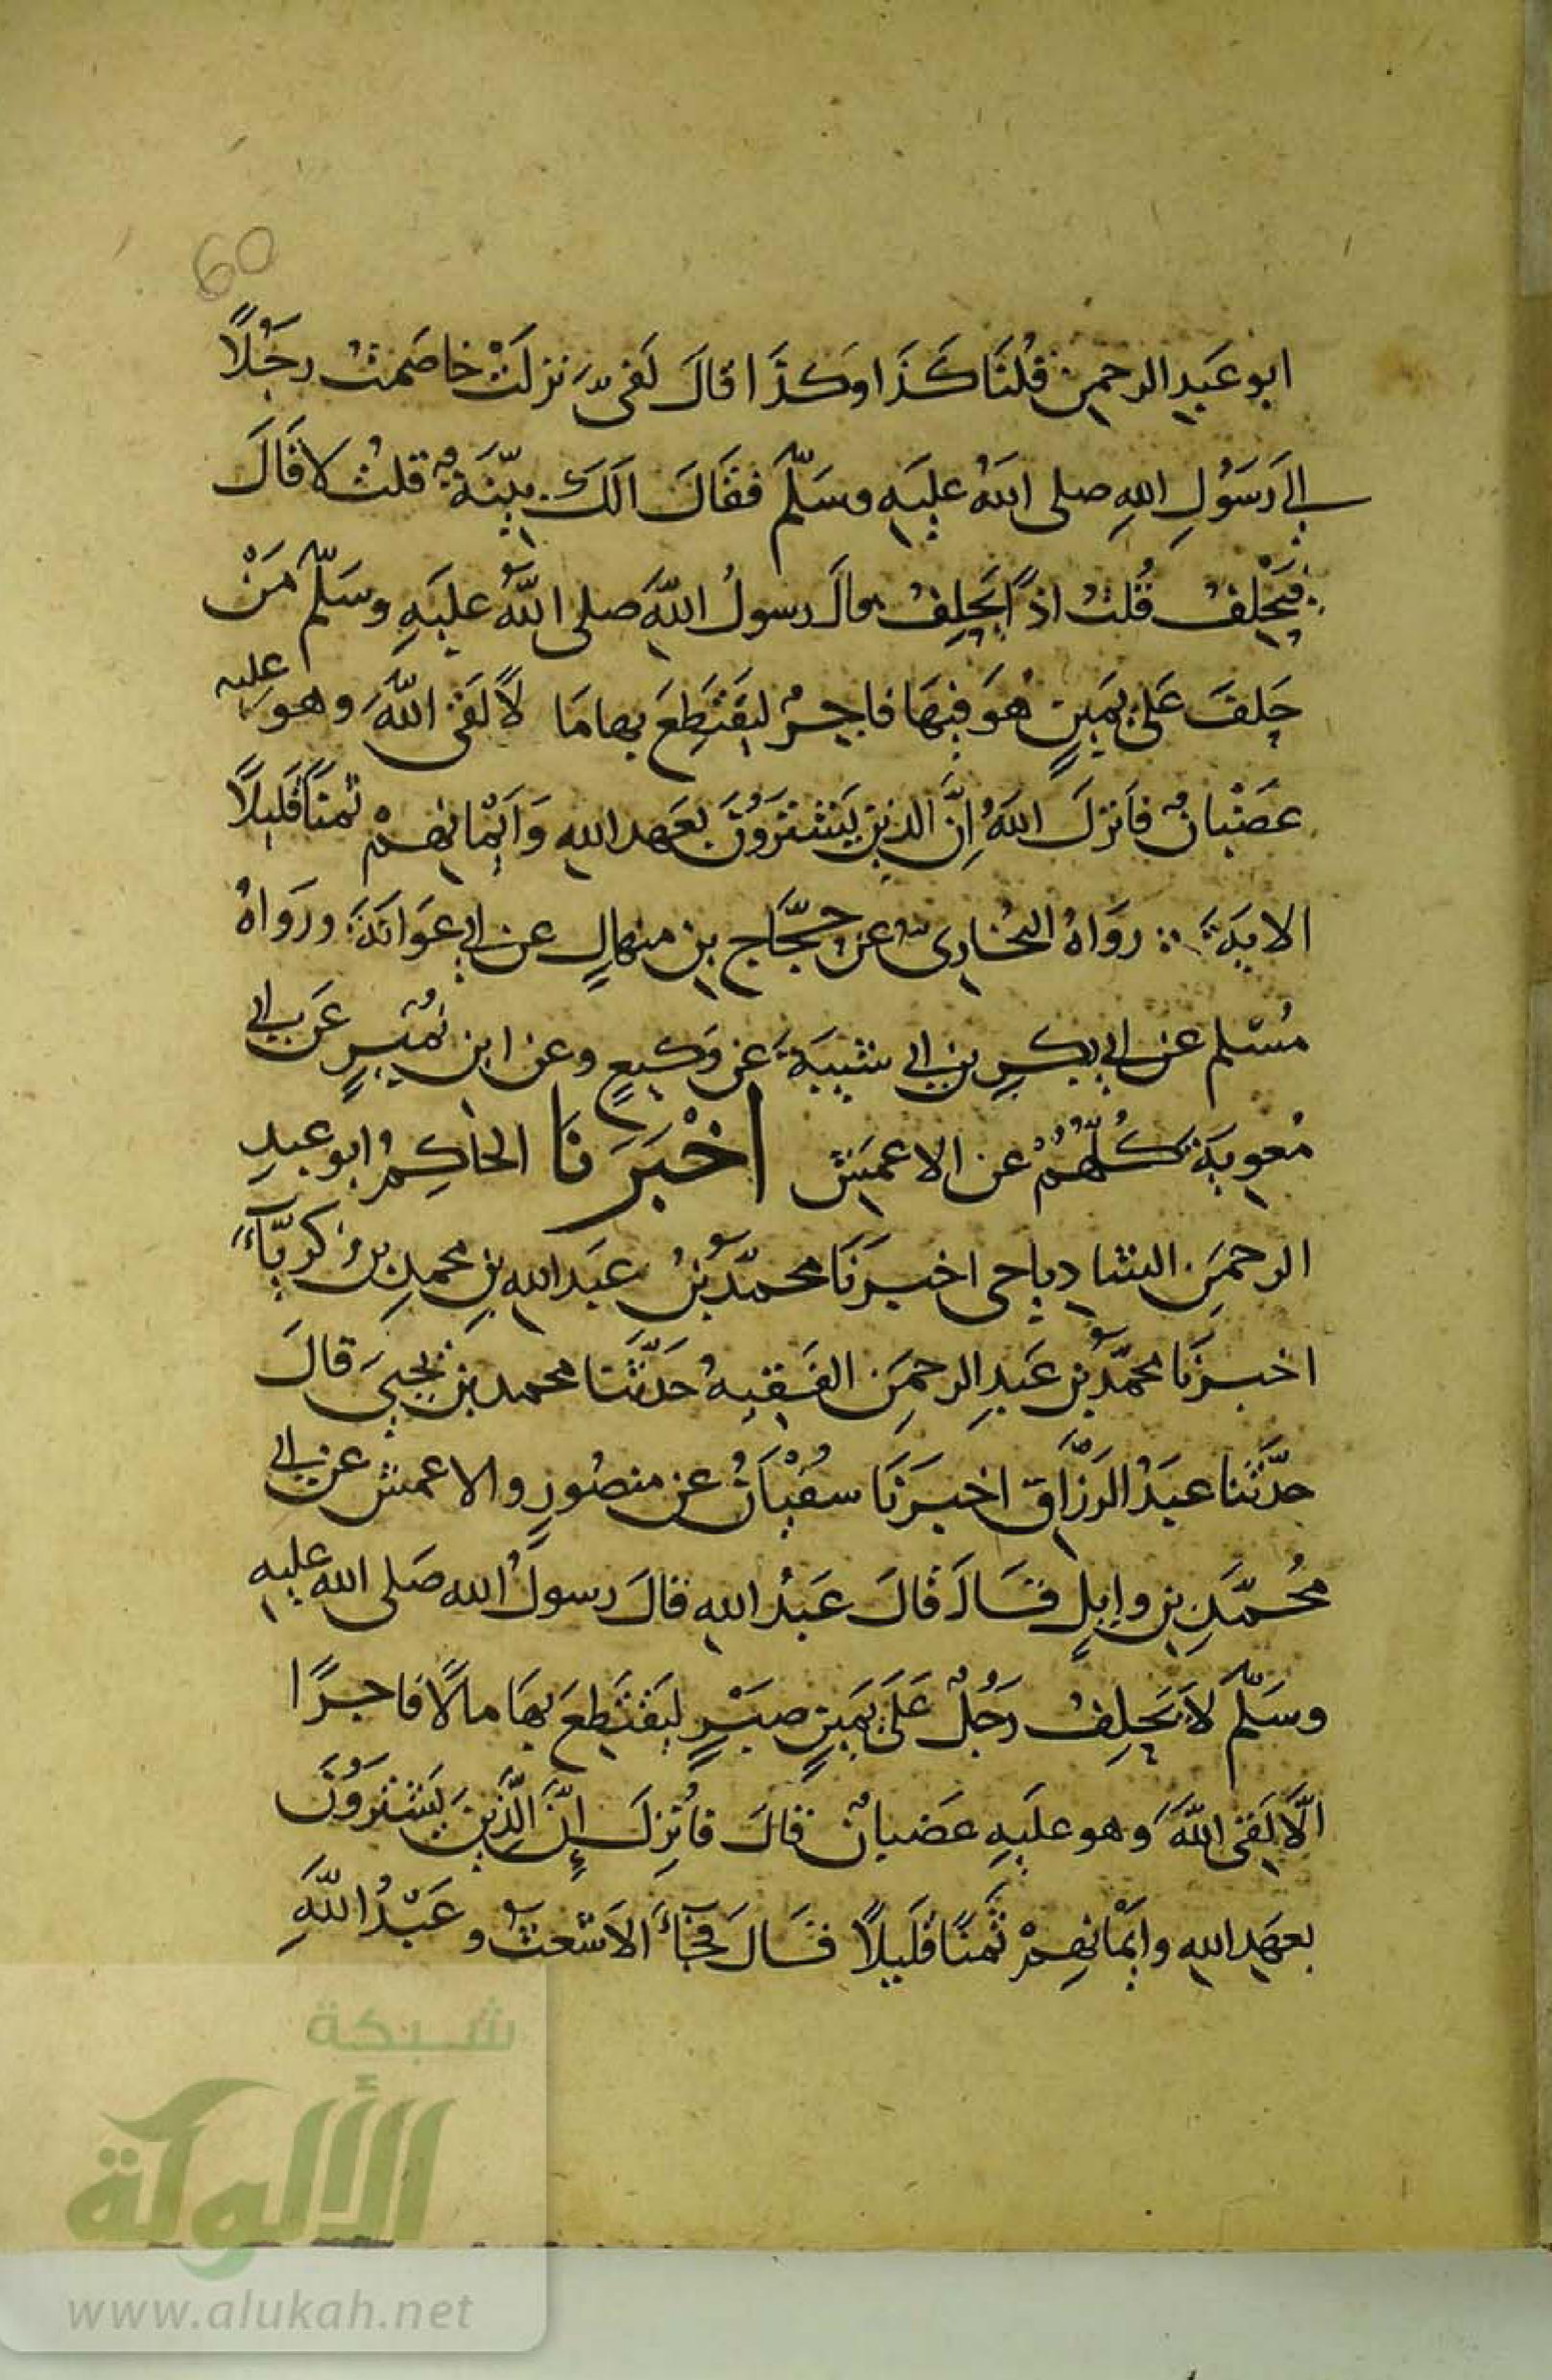 60
ابو عَبدِ الرحمنِ قُلنَا كَذَا وكذَا قالَ لَفِىَّ نزلَتْ خاصَمتُ رجُلًا
الى رَسَوُلِ اللهِ صلى اللهُ عليَهِ وسَلّمَ فقَالَ الَكَ بيّنَةٌ قلتُ لا قَالَ
فيَحْلِفُ قُلتُ اذًا يَحلِفُ قال رسولُ اللهِ صلى اللهُ عليَهِ وسَلّمَ مَنْ
حَلفَ عَلى يَمينٍ هُوَ فيهَا فاجرٌ ليَقتَطِعَ بها مَا لًا لَقى اللهَ وهو عليه
غضْبانٌ فاَنزلَ اللهُ اِنَّ الذينَ يَشترَوُنَ بعَهدِ اللهِ وَاَيْمانهمْ ثمنًا قَليلًا
الايَة روَاهُ البُخارى عن حجَّاج بن منهالٍ عن ابى عَوَانَةَ ورَواهُ
مُسْلم عن ابى بكرِ بن ابى شيبَةَ عن وَكيعٍ وعن ابن نُميرٍ عَن ابى
مُعوية كُلُّهُمْ عن الاعمَش اخْبَرَنَا الحَاكِمُ ابو عبدِ
الرحمَنِ الشاذياخى اخبرَنَا محمّدُ بنُ عبَدِ اللهِ بنِ محمدِ بن زكريّآءَ
اخبرَنَا محمّدُ بن عَبدِ الرحمَنِ الفَقيهُ حَدّثَنا محمد بن يَحيىَ قالَ
حدّثَنا عبَدُ الرَزّاق اخبَرَنَا سفُيْانُ عن منصُورٍ والاعمش عن ابى
مُحمَّدِ بن وايلٍ قَالَ قالَ عَبدُ اللهِ قالَ رسولُ الله صَلى الله عليه
وسَلّمَ لا يَحلِفُ رَجُلٌ عَلَى يَمينِ صبَرٍ ليَقتَطِعَ بهَا مالًا فاجرًا
الَّا لَقى اللهَ وهو عليَهِ غضبانٌ قالَ فاُنزِلَ إِنَّ الَّذِينَ يَشترَوُنَ
بعهَدِ اللهِ وايْمَانِهمْ ثمَنًا قَليلًا قَالَ فجَآءَ الاشْعثُ وعَبْدُ اللهِ
شبكة
الألوكة
www.alukah.net